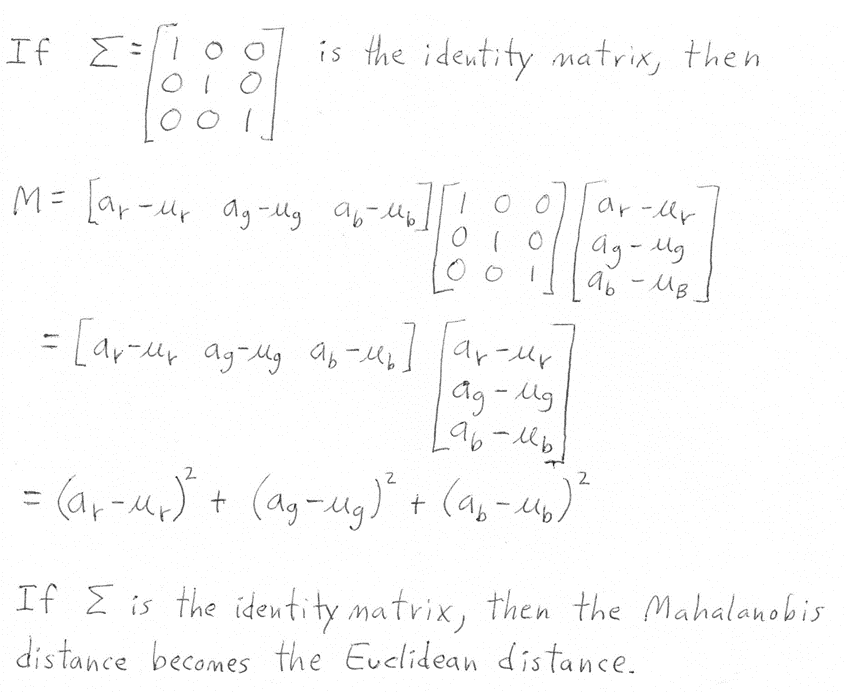 If Σ = [1 0 0 is the identity matrix, then
0 1 0
0 0 1]
M = [a_r - μ_r a_g - μ_g a_b - μ_b] [1 0 0 [a_r - μ_r
0 1 0 a_g - μ_g
0 0 1] a_b - μ_B]
= [a_r - μ_r a_g - μ_g a_b - μ_b] [a_r - μ_r
a_g - μ_g
a_b - μ_b]
= (a_r - μ_r)² + (a_g - μ_g)² + (a_b - μ_b)²
If Σ is the identity matrix, then the Mahalanobis
distance becomes the Euclidean distance.